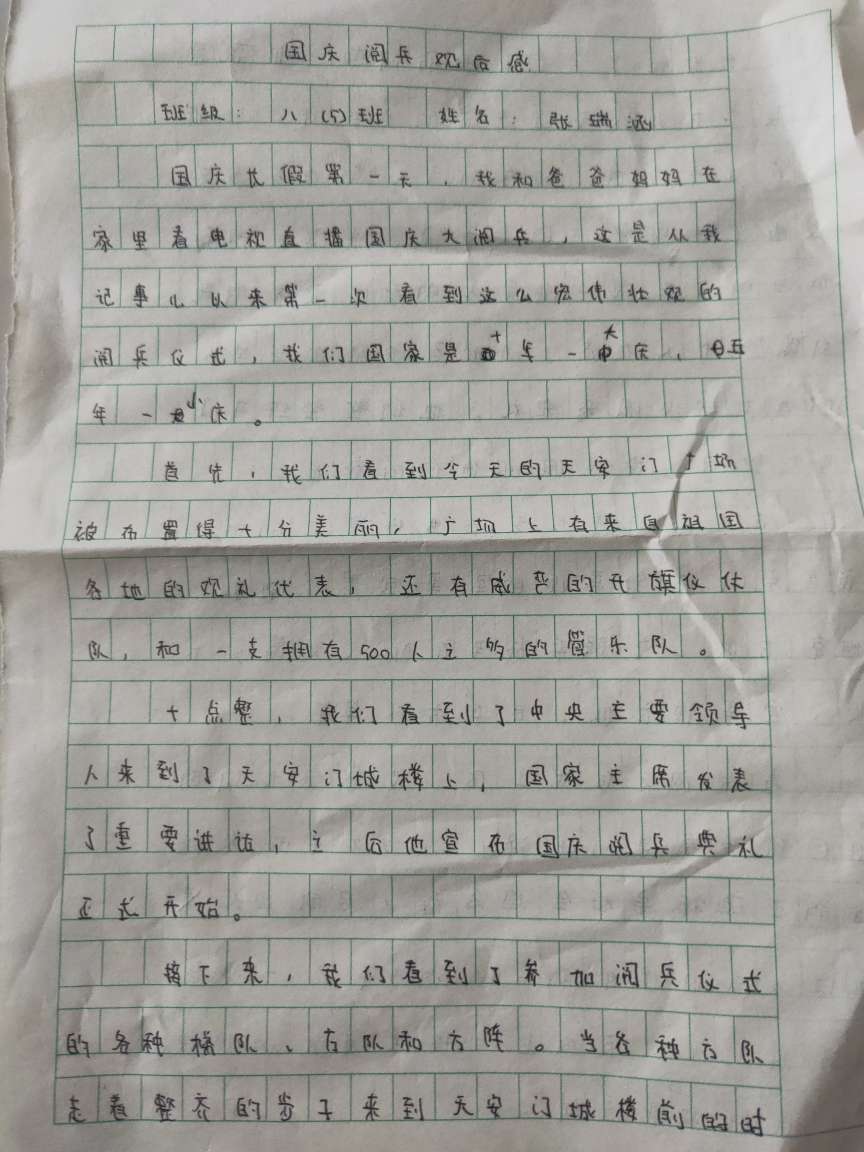 国庆阅兵观后感
班级：八(5)班 姓名：张瑞涵
国庆长假第一天，我和爸爸妈妈在
家里看电视直播国庆大阅兵，这是从我
记事儿以来第一次看到这么宏伟壮观的
阅兵仪式，我们国家是十年一大庆，五
年一小庆。
首先，我们看到今天的天安门广场
被布置得十分美丽，广场上有来自祖国
各地的观礼代表，还有威严的升旗仪仗
队，和一支拥有500人之多的管乐队。
十点整，我们看到了中央主要领导
人来到了天安门城楼上，国家主席发表
了重要讲话，之后他宣布国庆阅兵典礼
正式开始。
接下来，我们看到了参加阅兵仪式
的各种梯队、方队和方阵。当各种方队
走着整齐的步子来到天安门城楼前的时